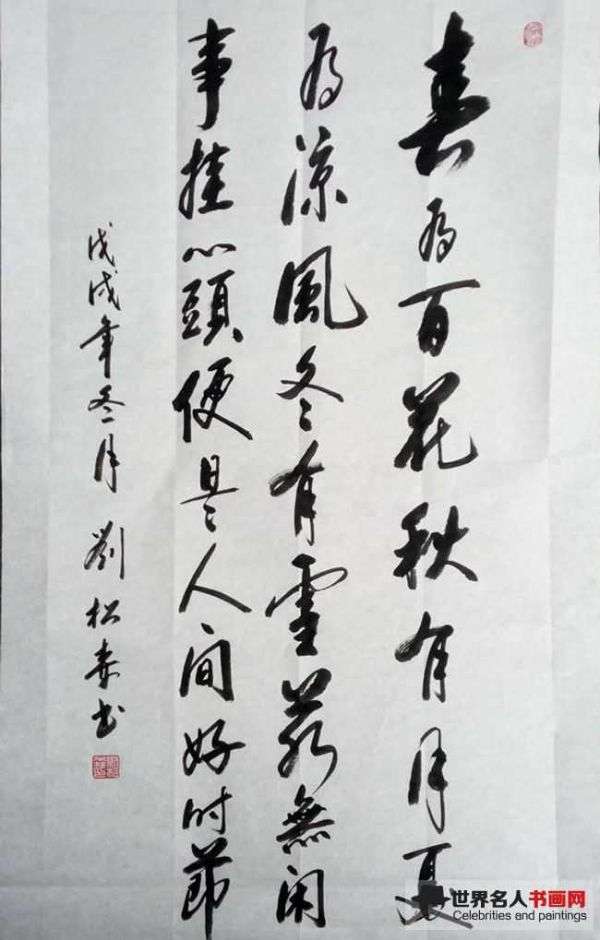 春为百花秋有月夏
为涼風冬有雪若無闲
事挂心頭便是人间好时節
戊戌年冬月 劉松 书
世界名人书画网
Celebrities and paintings